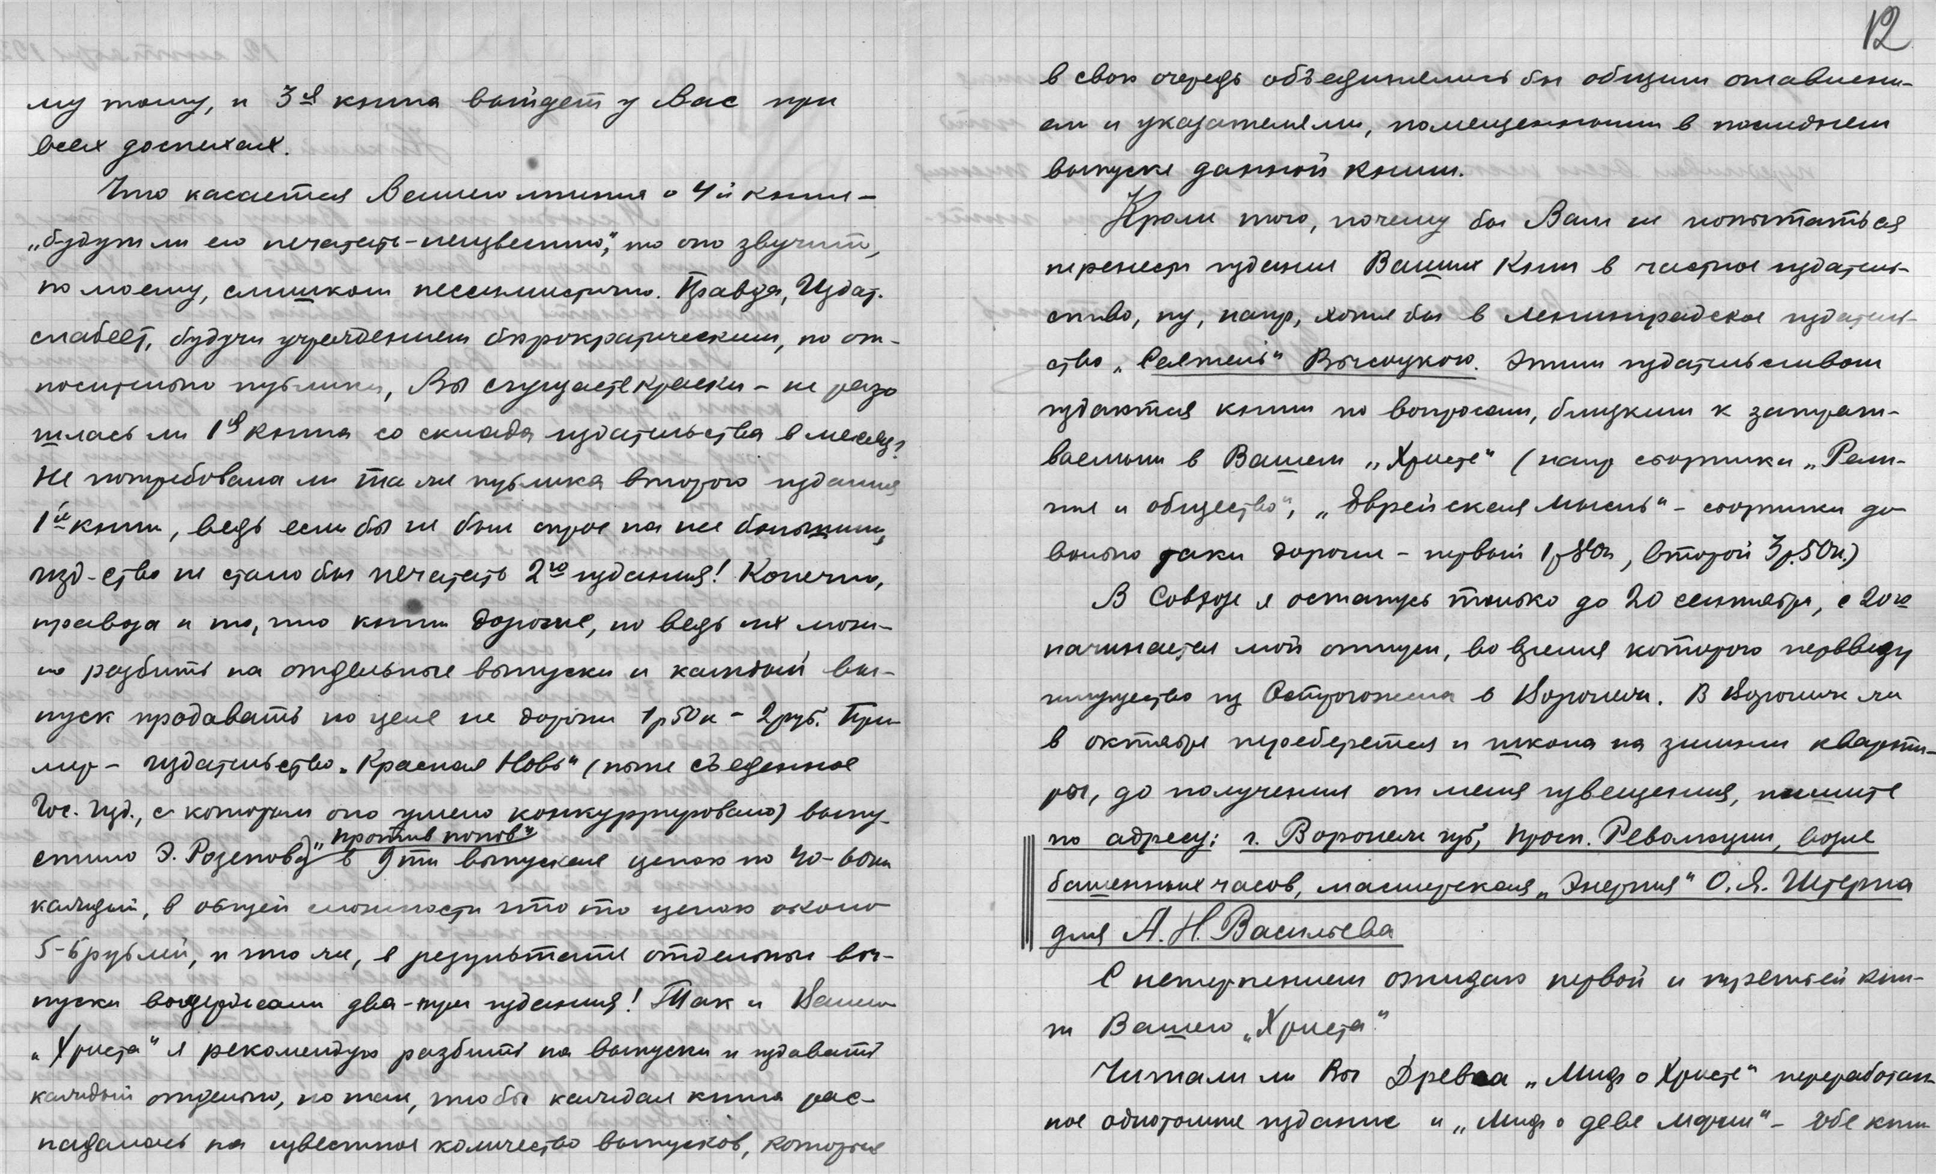 му тому, и 3-я книга выйдет у Вас при
всех доспехах.
Что касается Вашего мнения о 4й книге –
„будут ли ее печатать – неизвестно“, то оно звучит,
по моему, слишком пессимистично. Правда, Издат.
слабеет, будучи учреждением бюрократическим, но от-
носительно публики, Вы сгущаете краски – не разо
шлась ли 1я книга со склада издательства в месяц?
Не потребовала ли та же публика второго издания
1й книги, ведь если бы не был спрос на нее большим,
изд-ство не стало бы печатать 2го издания! Конечно,
правда и то, что книги дорогие, но ведь их мож-
но разбить на отдельные выпуски и каждый вы-
пуск продавать по цене не дороже 1р50к – 2руб. При
мер – издательство „Красная Новь“ (ныне съеденное
Гос. Изд., с которым оно умело конкурировало) выпу
стило Э. Розенова „Против попов“ в 9ти выпусках ценою по 40-60к
каждый, в общей сложности что то ценою около
5-6 рублей, и что же, в результате отдельные вы-
пуски выдержали два-три издания! Так и Вашего
„Христа“ я рекомендую разбить на выпуски и издавать
каждый отдельно, но так, чтобы каждая книга рас-
падалась на известное количество выпусков, которые
12
в свою очередь объединялись бы общим оглавлени-
ем и указателями, помещенными в последнем
выпуске данной книги.
Кроме того, почему бы Вам не попытаться
перенести издание Ваших книг в частное издатель-
ство, ну, напр, хотя бы в Ленинградское издатель-
ство „Сеятель“ Высоцкого. Этим издательством
издаются книги по вопросам, близким к затраги-
ваемым в Вашем „Христе“ (напр сборники „Рели-
гия и общество“, „Еврейская мысль“ – сборники до
вольно таки дорогие – первый 1р80к, второй 3р.50к.)
В Совхозе я останусь только до 20 сентября, с 20го
начинается мой отпуск, во время которого перевезу
имущество из Острогожска в Воронеж. В Воронеж же
в октябре переберется и школа на зимние кварти-
ры, до получения от меня извещения, пишите
по адресу: г. Воронеж губ, просп. Революции, возле
башенных часов, мастерская „Энергия“ О.Я. Штерна
для А.Н. Васильева
С нетерпением ожидаю первой и третьей кни-
ги Вашего „Христа“
Читали ли Вы Древса „Миф о Христе“ переработан
ное однотомное издание и „Миф о деве Марии“ – обе книги